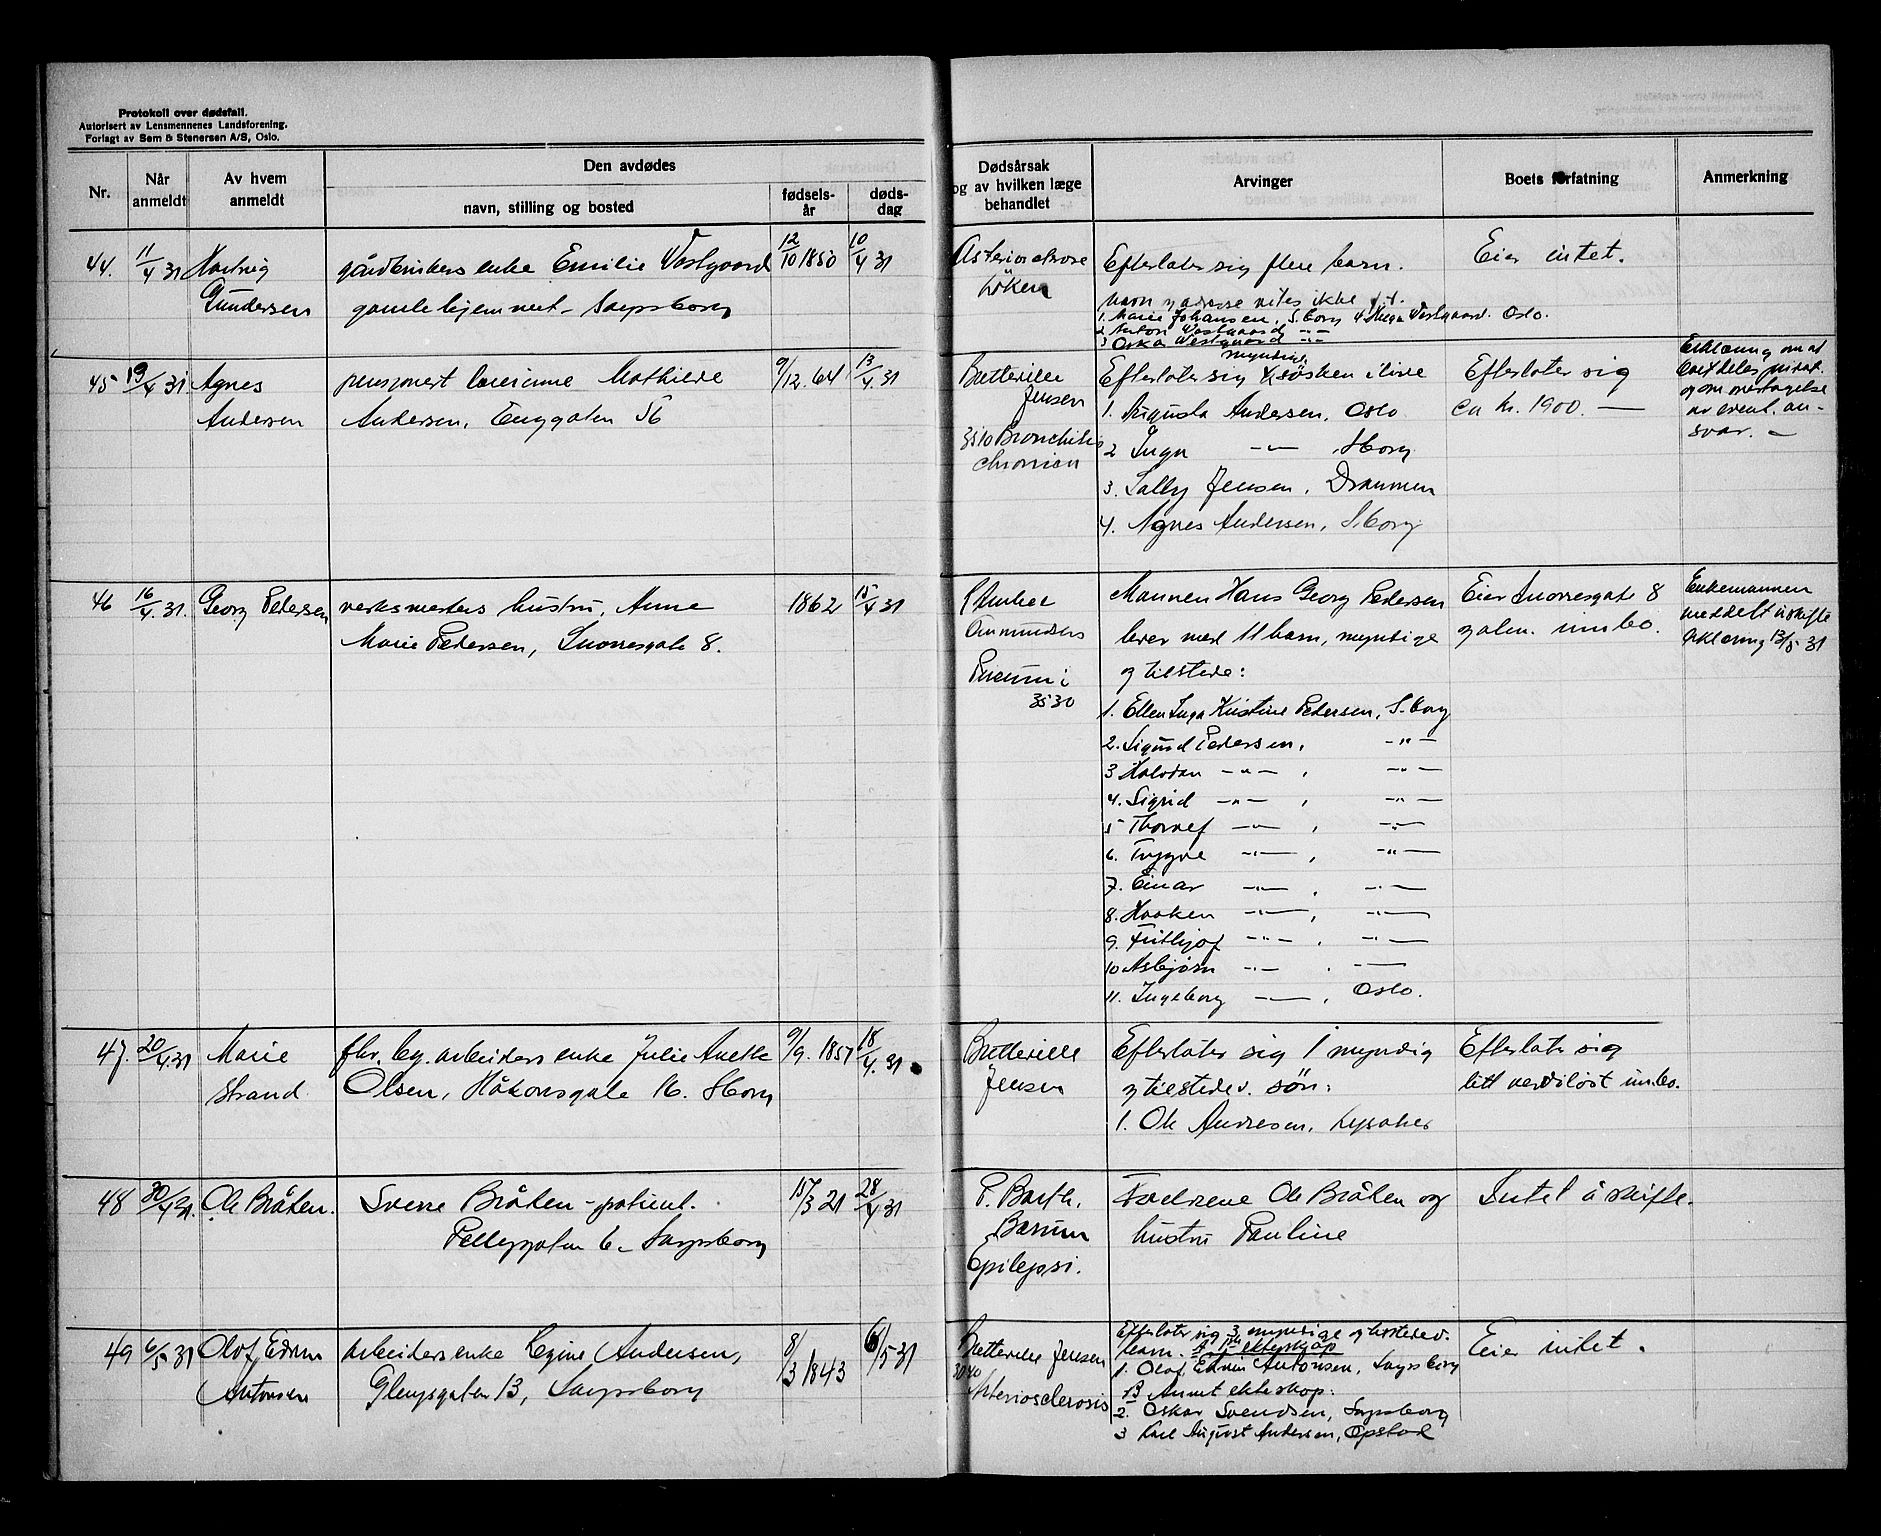 Protokoll over dødsfall.
Autorisert av Lensmennenes Landsforening.
Forlagt av Sem & Stenersen A/S, Oslo.
Nr.
Når anmeldt
Av hvem anmeldt
Den avdødes
navn, stilling og bosted
fødsels-år
døds-dag
Dødsårsak og av hvilken læge behandlet
Arvinger
Boets forfatning
Anmerkning
44. 11/4 31
Hartvig
Gundersen
gårdbrukers enke Emilie Vestgaard
gamlehjemmet - Sarpsborg
12/10 1850
10/4 31
Løken
Efterlater sig flere barn.
navn og adresse vites ikke
1. Marie Johansen, S.borg 4. Helga Vestgaard. Oslo.
2 Anton Vestgaard -"-
3 Oskar Vestgaard -"-
Eier intet.
45 19/4 31
Agnes
Andersen
pensjonert lærerinne Mathilde
Andersen, Enggaten 56
9/12. 64
13/4 31
Jensen
3510 Bronchitis
chronica
myndige
Efterlater sig 4 søsken ilive
1. Augusta Andersen, Oslo
2 Inga -"- S.borg
3. Sally Jensen, Drammen
4. Agnes Andersen, S.borg.
Efterlater sig
ca kr. 1900. —
Erklæring om at
boet deles privat
og om overtagelse
av event. an-
svar. -
46 16/4 31.
Georg Petersen
verksmesters hustru, Anne
Marie Pedersen, Snorresgate 8.
1862
15/4 31
Amundsen
Pneumoni
3530
Mannen Hans Georg Pedersen
lever med 11 barn, myndige
og tilstede:
1. Ellen Inga Kristine Pedersen, S.borg
2. Sigurd Pedersen, -"-
3 Halvdan -"- , -"-
4. Sigrid -"- , -"-
5 Thorleif -"- , -"-
6. Trygve -"- , -"-
7. Einar -"- , -"-
8. Haaken -"- , -"-
9. Frithjof -"- , -"-
10 Asbjørn -"- , -"-
11. Ingeborg -"- , Oslo.
Eier Snorresgate 8
galm. innbo.
Enkemannen
meddelt uskifte
erklæring 13/5 31
47. 20/4 31
Marie
Strand
fhv. by. arbeiders enke Julie Anette
Olsen, Håkonsgate 16. S.borg
9/9. 1851
18/4. 31
Jensen
Efterlater sig 1 myndig
og tilstedev. søn:
1. Ole Andresen, Lysaker
Efterlater sig
litt verdiløst innbo.
48 30/4 31.
Ole Bråten.
Sverre Bråten - patient.
Pellygaten 6 - Sarpsborg
15/3 21
28/4 31
P. Barth.
Bærum
Epilepsi.
Foreldrene Ole Bråten og
hustru Pauline
Intet å skifte.
49 6/5 31
Olof Edvin
Antonsen
arbeidersenke Regine Andersen,
Glengsgaten 13, Sarpsborg
8/3 1843
6/5 31
Jensen
3040
Arteriosclerosis
Efterlater sig 3 myndige og tilstedev.
barn. A 1ste ekteskap
1. Olof Edvin Antonsen, Sarpsborg
B Annet ekteskap:
2. Oskar Svendsen, Sarpsborg
3 Karl August Andersen, Opstad
Eier intet.